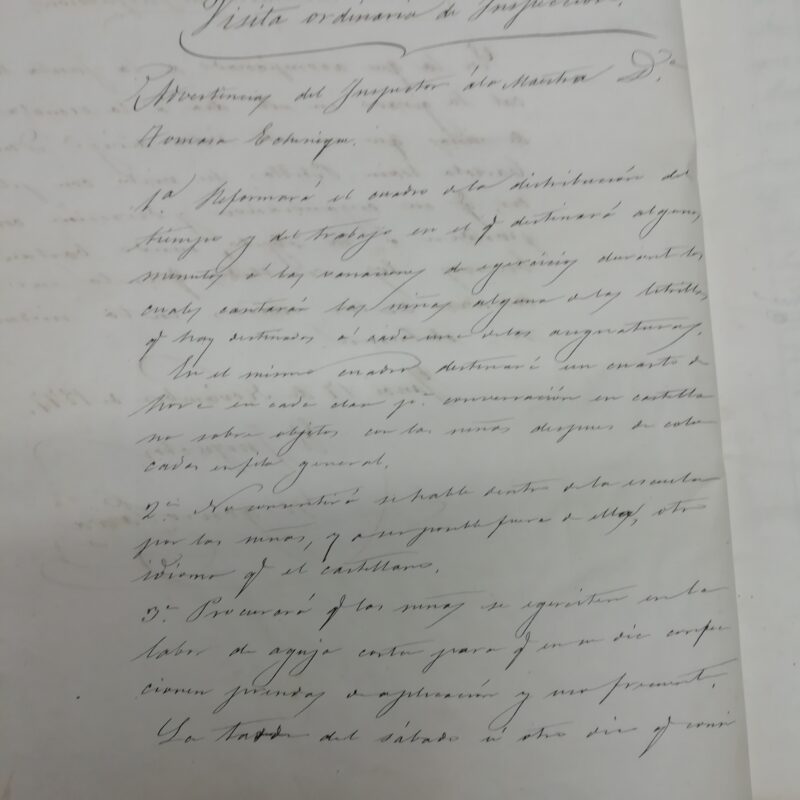 Visita ordinaria de Inspección.
Advertencias del Inspector á la Maestra D.ª
Tomasa
1.ª Reformará el cuadro de la distribución del
tiempo y del trabajo en el q destinará algunos
minutos á las variaciones de egercicios durante los
cuales cantarán las niñas alguna de las letrillas
q hay destinadas á cada una de las asignaturas.
En el mismo cuadro destinará un cuarto de
hora en cada clase p.ª conversación en castella
no sobre objetos con las niñas despues de colo
cadas en fila general.
2.ª No consentirá se hable dentro de la escuela
por las niñas, y a ser posible fuera de ella, otro
idioma q el castellano.
3.ª Procurará q las niñas se egerciten en la
labor de aguja corta para q en su dia confec
cionen prendas de aplicación y uso frecuente.
La tarde del sábado ú otro dia q convi